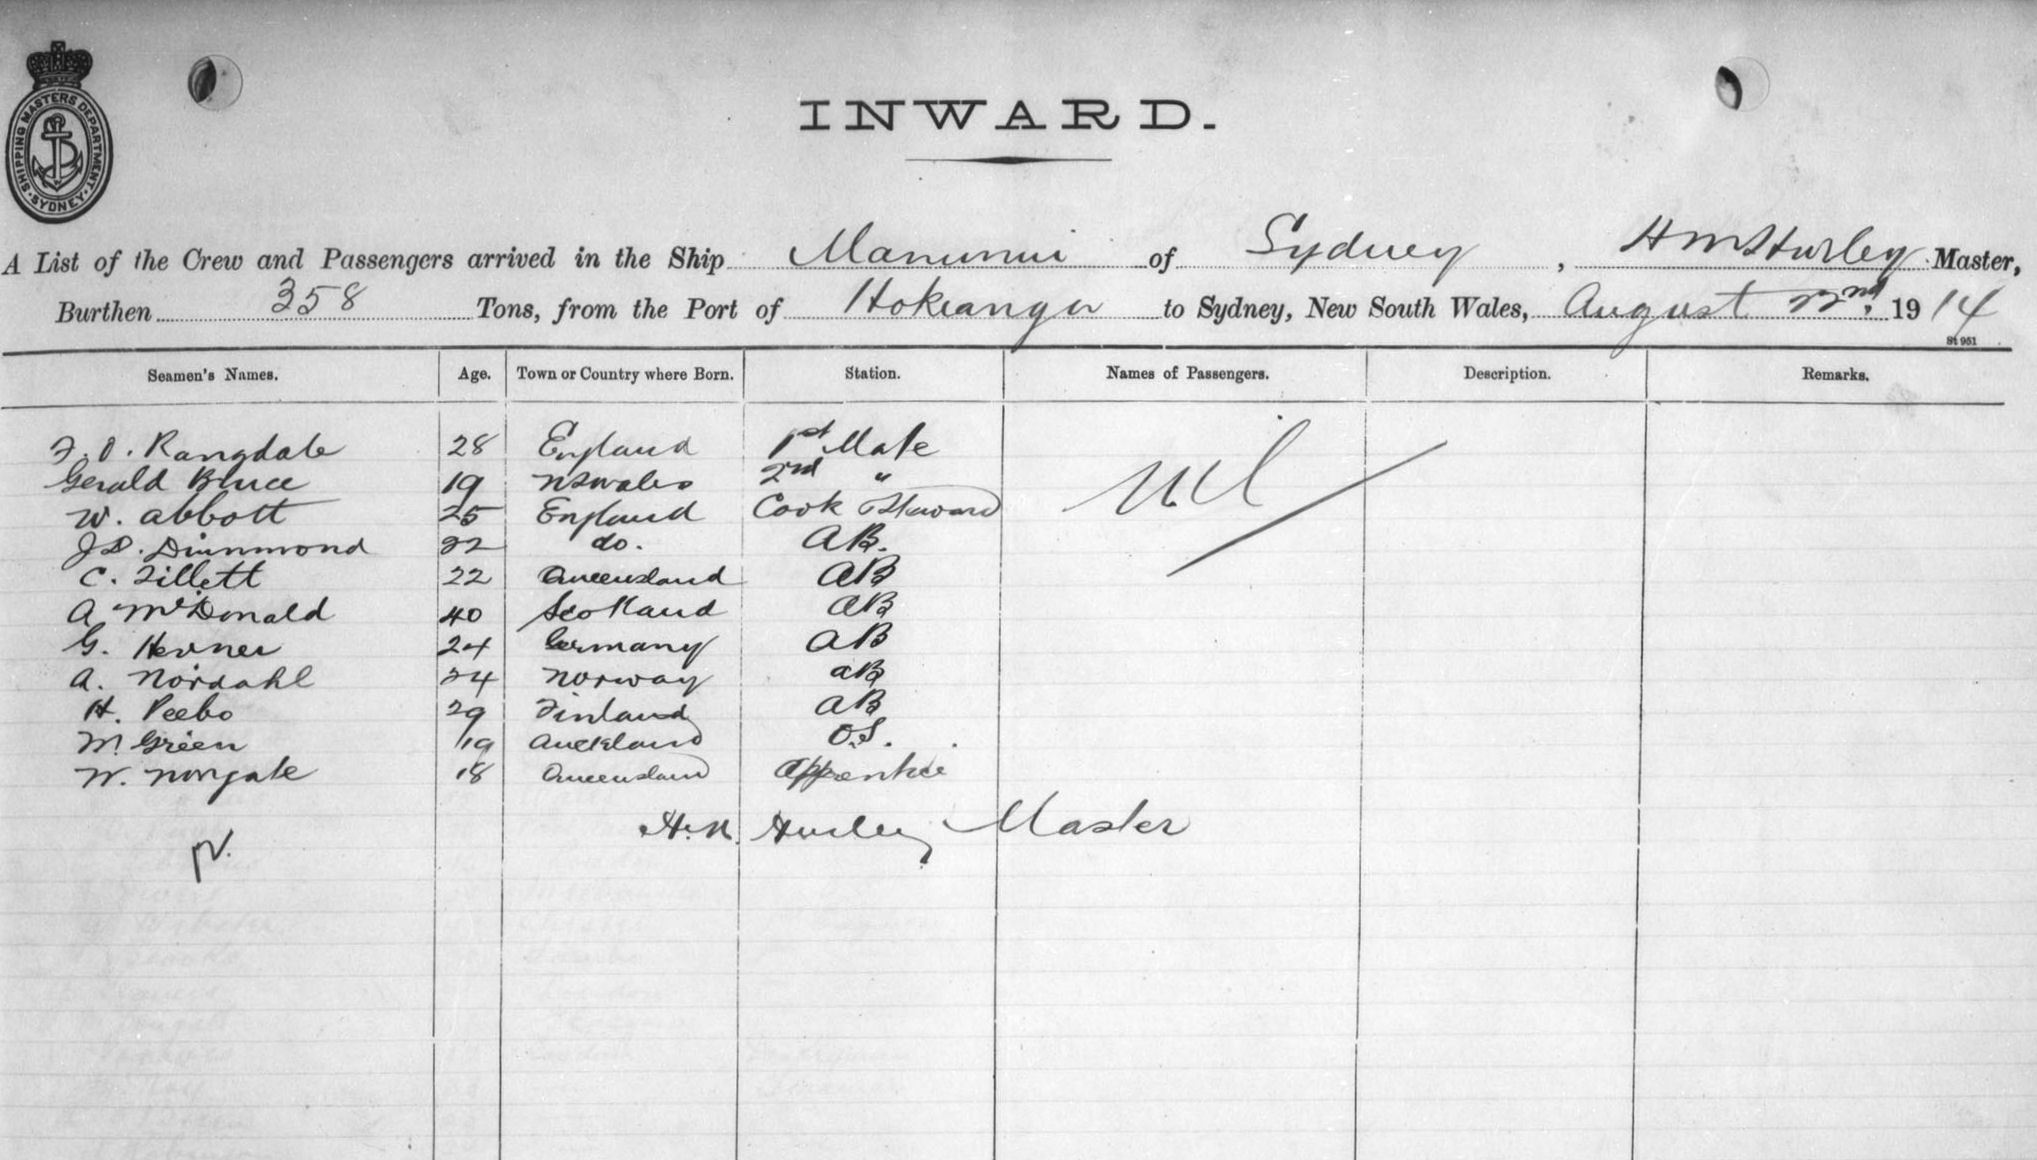 SHIPPING MASTERS DEPARTMENT. SYDNEY.
INWARD.
A List of the Crew and Passengers arrived in the Ship Manunui of Sydney, H M Hurley Master,
Burthen 358 Tons, from the Port of Hokianga to Sydney, New South Wales, August 22nd, 1914
St 951
Seamen's Names. Age. Town or Country where Born. Station. Names of Passengers. Description. Remarks.
28 England 1st Mate Nil
Gerald Bruce 19 NSWales 2nd "
W. Abbott 25 England Cook & Steward
J D. Drummond 22 do. AB.
C. Tillett 22 Queensland AB
A McDonald 40 Scotland AB
G. 24 Germany AB
A. Nordahl 24 Norway AB
H. Peebo 29 Finland AB
M. Green 19 Auckland O.S.
W. Norgate 18 Queensland Apprentice
H. M. Hurley Master